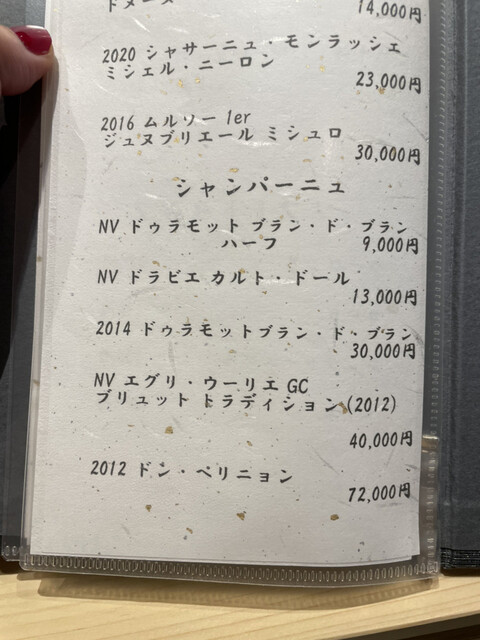 ドメーヌ
14,000円
2020 シャサーニュ・モンラッシェ
ミシェル・ニーロン
23,000円
2016 ムルソー 1er
ジュヌブリエール ミシュロ
30,000円
シャンパーニュ
NV ドゥラモット ブラン・ド・ブラン
ハーフ 9,000円
NV ドラピエ カルト・ドール
13,000円
2014 ドゥラモットブラン・ド・ブラン
30,000円
NV エグリ・ウーリエ GC
ブリュット トラディション(2012)
40,000円
2012 ドン・ペリニョン
72,000円